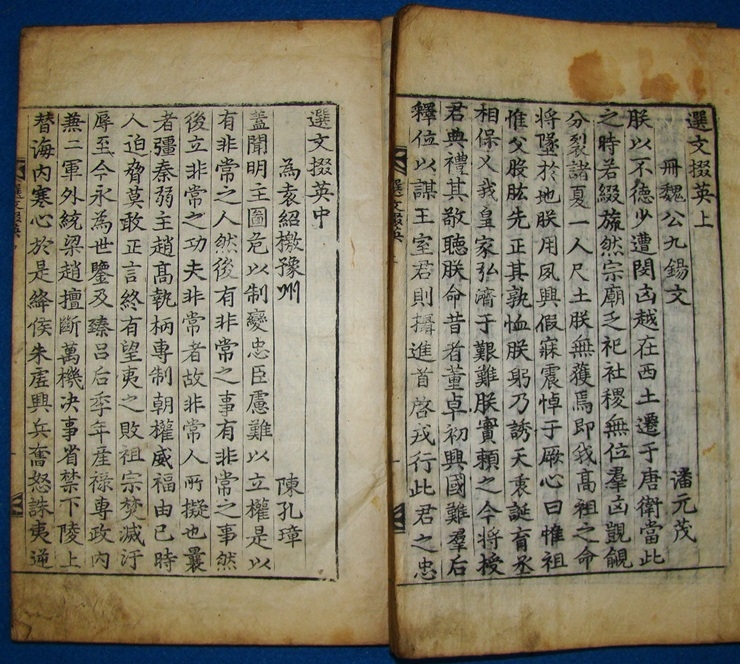 選文掇英上
冊魏公九錫文
潘元茂
朕以不德少遭閔凶越在西土遷于唐衛當此
之時若綴旒然宗廟乏祀社稷無位羣凶覬覦
分裂諸夏一人尺土朕無獲焉即我高祖之命
將墜於地朕用夙興假寐震悼于厥心曰惟祖
惟父股肱先正其孰恤朕躬乃誘天衷誕育丞
相保乂我皇家弘濟于艱難朕實賴之今將授
君典禮其敬聽朕命昔者董卓初興國難羣后
釋位以謀王室君則攝進首啓戎行此君之忠
選文掇英
選文掇英中
為袁紹檄豫州
陳孔璋
蓋聞明主圖危以制變忠臣慮難以立權是以
有非常之人然後有非常之事有非常之事然
後立非常之功夫非常者故非常人所擬也曩
者彊秦弱主趙高執柄專制朝權威福由己時
人迫脅莫敢正言終有望夷之敗祖宗焚滅汙
辱至今永為世鑒及臻呂后季年產祿專政內
兼二軍外統梁趙擅斷萬機決事省禁下陵上
替海內寒心於是絳侯朱虛興兵奮怒誅夷逆
選文掇英